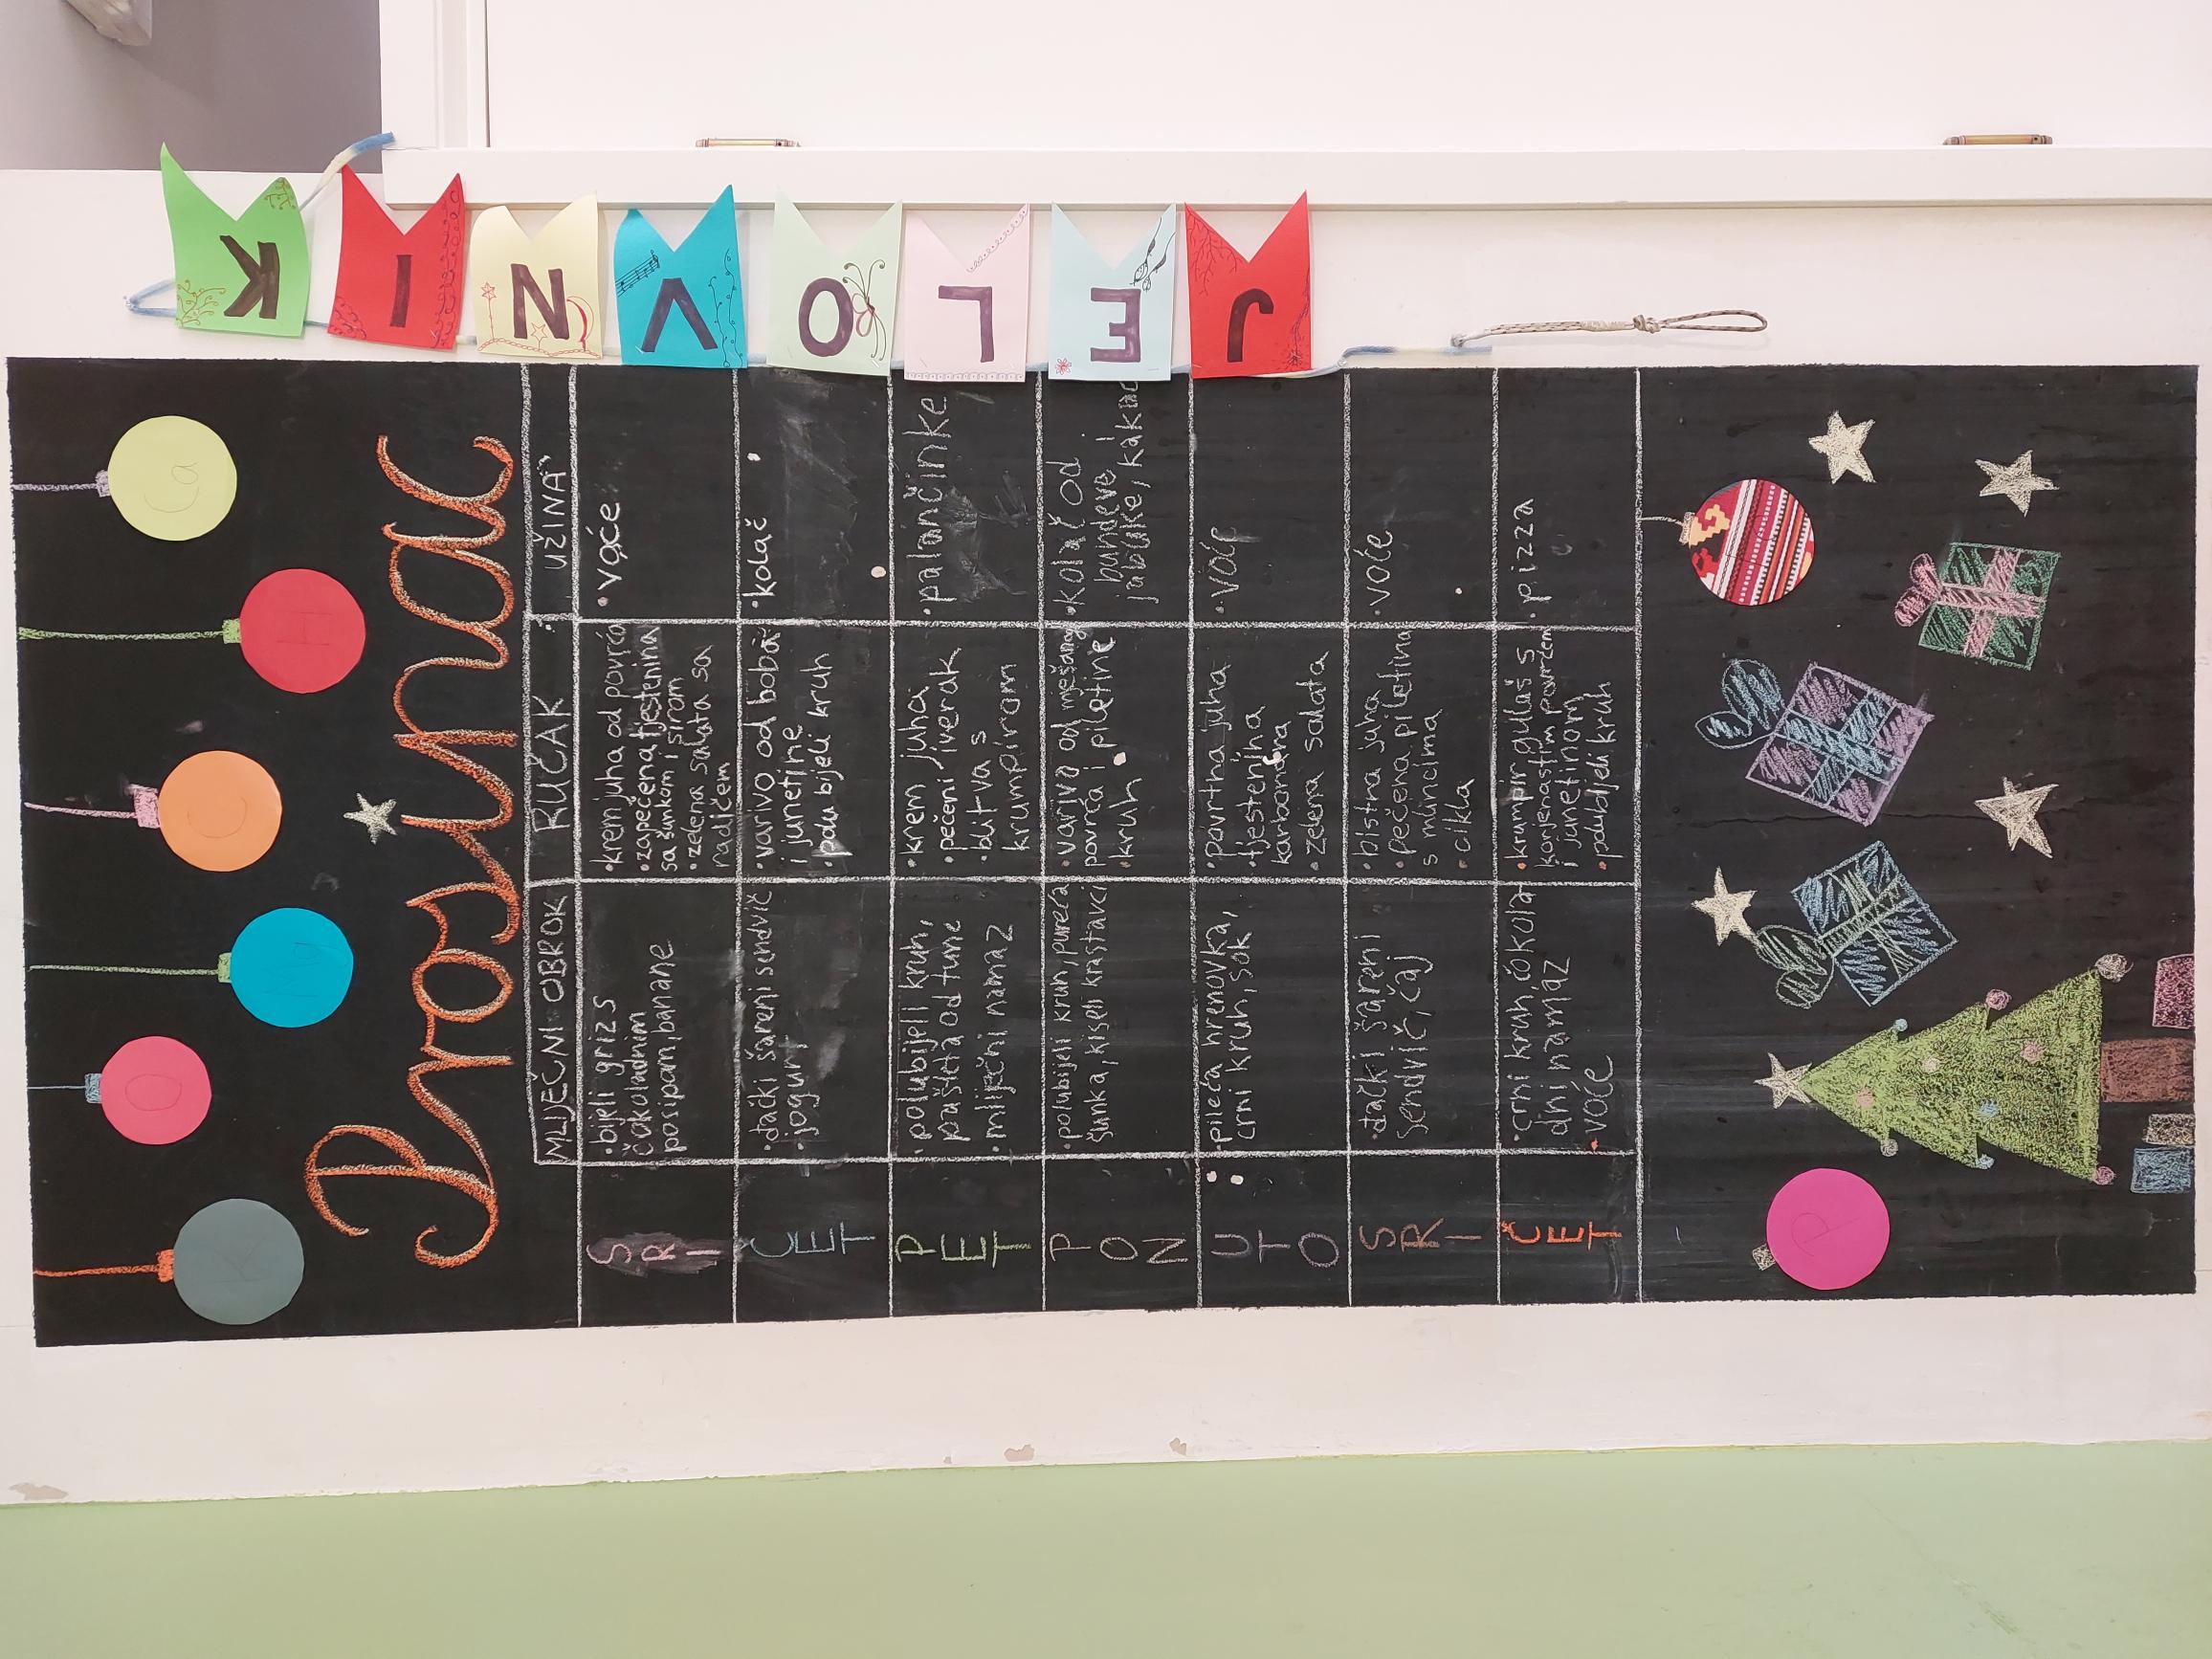 JELOVNIK
Prosinac
MLIJEČNI OBROK
RUČAK
UŽINA
SRI
• bijeli griz s
čokoladnim
posipom, banane
• krem juha od povrća
• zapečena tjestenina
sa šunkom i sirom
• zelena salata sa
radičem
• voće
ČET
• đački šareni sendvič
• jogurt
• varivo od boba
i junetine
• polu bijeli kruh
• kolač
PET
• polubijeli kruh,
pašteta od tune
• mliječni namaz
• krem juha
• pečeni iverak
• blitva s
krumpirom
• palančinke
PON
• polubijeli kruh, pureća
šunka, kiseli krastavci
• varivo od mješanog
povrća i piletine
• kruh
• kolač od
bundeve i
jabuke, kakao
UTO
• pileća hrenovka,
crni kruh, sok
• povrtna juha
• tjestenina
karbonara
• zelena salata
• voće
SRI
• đački šareni
sendvič, čaj
• bistra juha
• pečena piletina
s mlincima
• cikla
• voće
ČET
• crni kruh, čokola
dni namaz
• voće
• krumpir gulaš s
korjenastim povrćem
i junetinom
• polubijeli kruh
• pizza